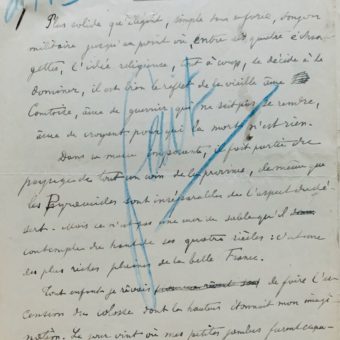 Plus solide qu'élégant, simple sans enforce, songeur
militaire jusqu'au point où, entre ses quatre échau-
gettes, l'idée religieuse, tout à coup, se décide à le
dominer, il est bien le reflet de la vieille âme
Comtoise, âme de guerrier qui ne sait pas se rendre,
âme de croyant pour qui la mort n'est rien.
Dans sa masse imposante, il fait partie du
paysage de tout un coin de la province, de même que
les Pyramides sont inséparables de l'aspect du dé-
sert. Mais ce n'est pas une mer de sable qu'il
contemple du haut de ses quatre siècles : c'est une
des plus riches plaines de la belle France.
Tout enfant je rêvais de faire l'as-
cension du colosse dont la hauteur étonnait mon imagi-
nation. Le jour vint où mes petites jambes furent capa-
fait